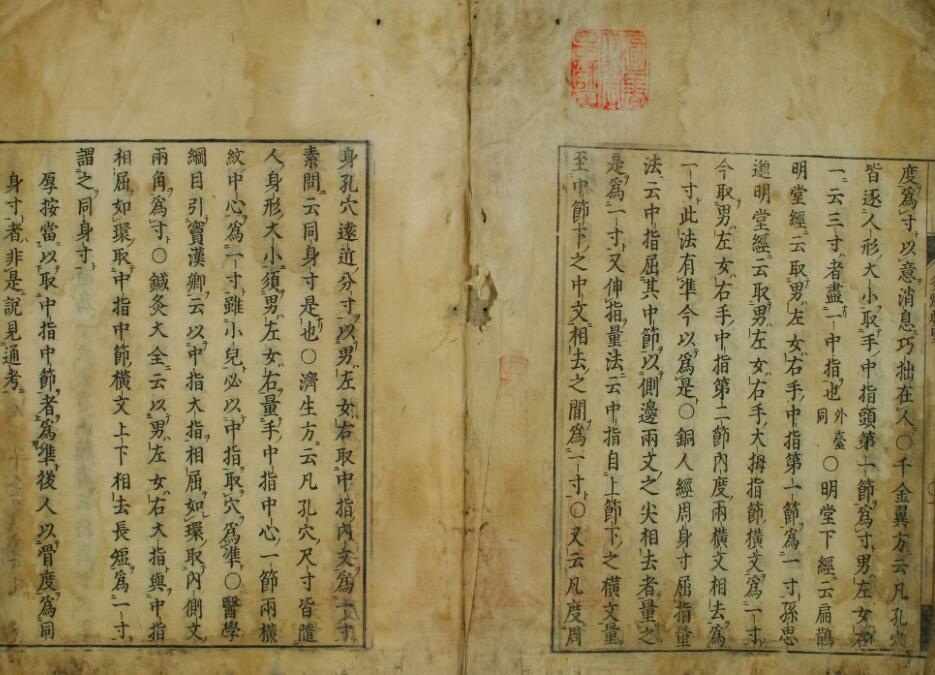 度爲寸以意消息巧拙在人〇千金翼方云凡孔穴
皆逐人形大小取手中指頭第一節爲寸男左女右
一云三寸者盡一中指也外臺同〇明堂下經云扁鵲
明堂經云取男左女右手中指第一節爲一寸孫思
邈明堂經云取男左女右手大拇指節橫文爲一寸
今取男左女右手中指第二節內度兩橫文相去爲
一寸此法有准今以爲是〇銅人經周身寸屈指量
法云中指屈其中節以側邊兩文之尖相去者量之
是爲一寸又伸指量法云中指自上節下之橫文量
至中節下之中文相去之間爲一寸〇又云凡度周
身孔穴遠近分寸以男左女右取中指內文爲一寸
素問云同身寸是也〇濟生方云凡孔穴尺寸皆隨
人身形大小須男左女右量手中指中心一節兩橫
紋中心爲一寸雖小兒必以中指取穴爲準〇醫學
綱目引竇漢卿云以中指大指相屈如環取內側文
兩角爲寸〇鍼灸大全云以男左女右大指與中指
相屈如環取中指中節橫文上下相去長短爲一寸
謂之同身寸
厚按當以取中指中節者爲準後人以骨度爲同
身寸者非是說見通考